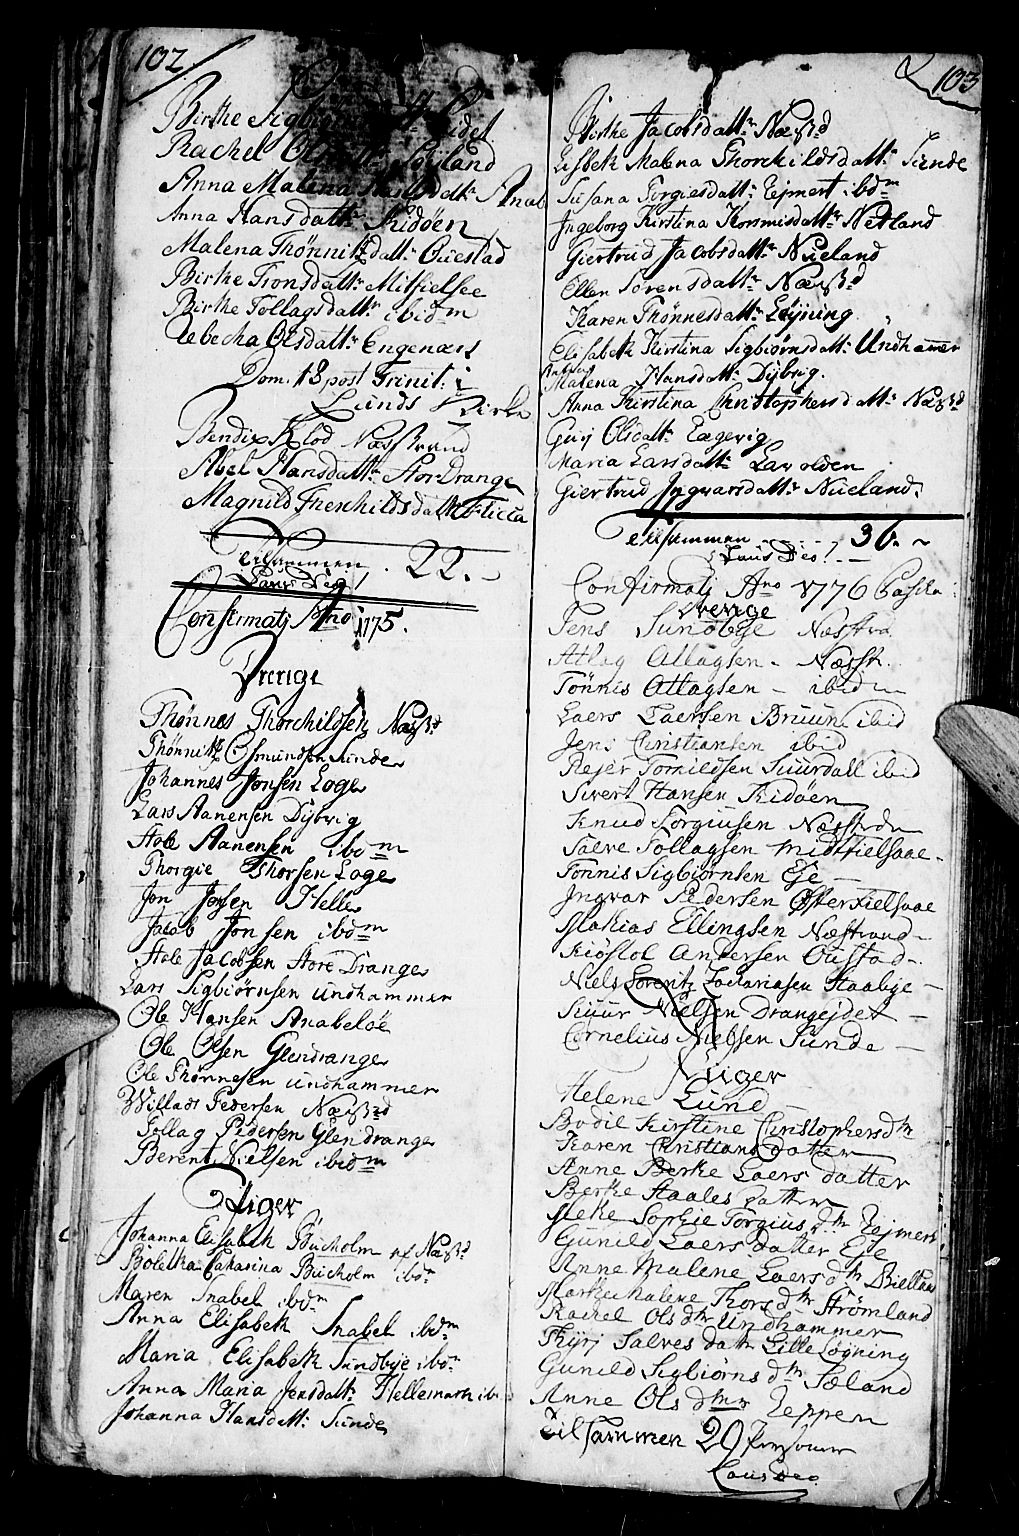 102
Birthe Sigbiørns Eidet
Rachel Løyland
Anna Malena
Anna Hansdattr Kidøen
Malena Thønnisdattr Qviestad
Birthe Tronsdattr Mitfielsee
Birthe Tollagsdattr ibidm
Rebecha Olsdattr Engenæs
Dom. 18 post Trinit: i
Lunds Kirke
Bendix Klod Næsstrand
Abel Hansdattr StorDrange
Magnild Therchildsdattr Flicka
Tilsammen . 22. -
Laus Deo!
Confirmatj Ano 1775.
Drenge
Thønnes Thorchildsen Næssd
Thønnis Osmundsen Sunde
Johannes Jonsen Loge
Lars Aanensen Dybvig
Stole Aanensen ibdm
Thorgie Thorsen Loge
Jon Jonsen Helle
Jacob Jonsen ibdm
Stole Jacobsen Store Drange
Lars Sigbiørnsen Undhammer
Ole Hansen Anabeløe
Ole Olsen Glendrange
Ole Thønnesen Undhammer
Willads Pedersen Næssd
Tollag Pedersen Glendrange
Berent Nielsen ibidm
Piger
Johanna Elisabeth Bucholm på Næssd
Bolette Catharina Bucholm ibdm
Maren Snabel ibdm
Anna Elisabeth Snabel ibdm
Maria Elisabeth Sundbye ibdm
Anna Maria Jensdattr Hellesmark ibd
Johanna Hansdattr Sunde
103
Birthe Jacobsdattr Næssd
Lisbeth Malena Thorchildsdattr Sunde
Susana Torgiesdattr Tejmert ibdm
Ingeborg Kirstina Tommisdattr Netland
Giertrud Jacobsdattr Nueland
Ellen Sørensdattr Næssd
Karen Thønnesdattr Løyning
Elisabeth Kirstina Sigbiørnsdattr Undhamer
Malena Hansdattr Dybvig.
Anna Kirstina Christophersdattr Næssd
Gurj Olsdattr Eegevig
Maria Larsdattr Lavolden
Giertrud Jngvarsdattr Nueland.
Tilsammen - - - - 36. ~
Laus Deo! -
Confirmatj Ano 1776 Paschæ
Drenge
Jens Sundbye Næsstra
Atlag Atlagsen - Næsstr.
Tönnis Atlagsen - ibidm
Laers Laersen Bruun ibid
Jens Christiansen ibid
Rejer Tomilssen Suurdall ibid
Sivert Hansen Kidøen
Knud Torgiusen Næsstrdn
Salve Tollagsen Midtfielsaae -
Tönnis Sigbiørnsen Eje -
Jngvar Pedersen Østerfielsaae
Mathias Ellingsen Næstrand -
Kiøstol Andersen Ou stad -
Niels Lorentz Zachariasen Staabye -
Siuur Nielsen Drangejdet -
Cornelius Nielsen Sunde -
Piger
Helene Lund -
Bodil Kirstine Christophersdtr
Karen Christiansdatter
Anne Berthe Laers datter
Berthe Staales datter
Mette Sophie Torgius dtr Tejmert
Gunild Laers datter Eje
Anne Malene Laers dtr Bielland
Marthe Malene Thors dtr Strømland
Rachel Ols dtr Undhammer
Thyrj Salves datter Lille Løgning
Gunild Sigbiørns dtr Sæland
Anne Ols dtter Jeppen
Tilsammen 29 Personer
Laus Deo